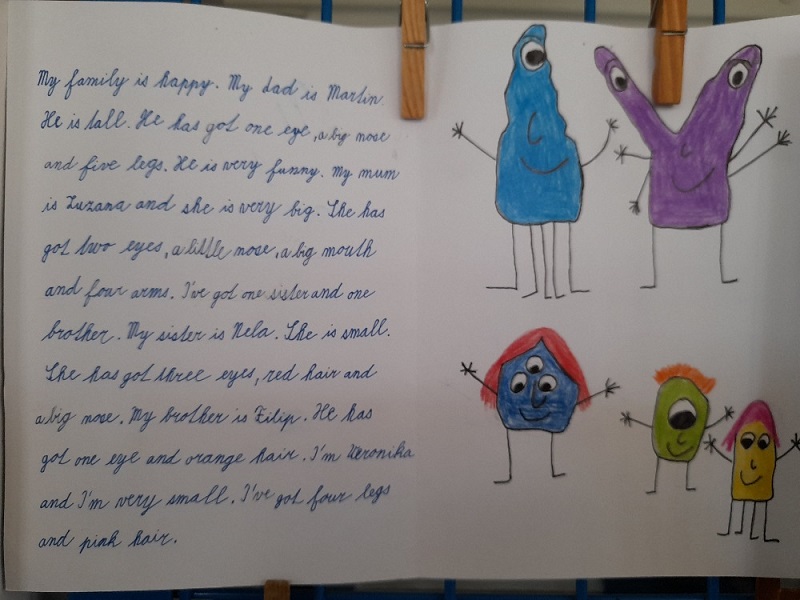 My family is happy. My dad is Martin.
He is tall. He has got one eye, a big nose
and five legs. He is very funny. My mum
is Zuzana and she is very big. She has
got two eyes, a little nose, a big mouth
and four arms. I've got one sister and one
brother. My sister is Nela. She is small.
She has got three eyes, red hair and
a big nose. My brother is Filip. He has
got one eye and orange hair. I'm Veronika
and I'm very small. I've got four legs
and pink hair.